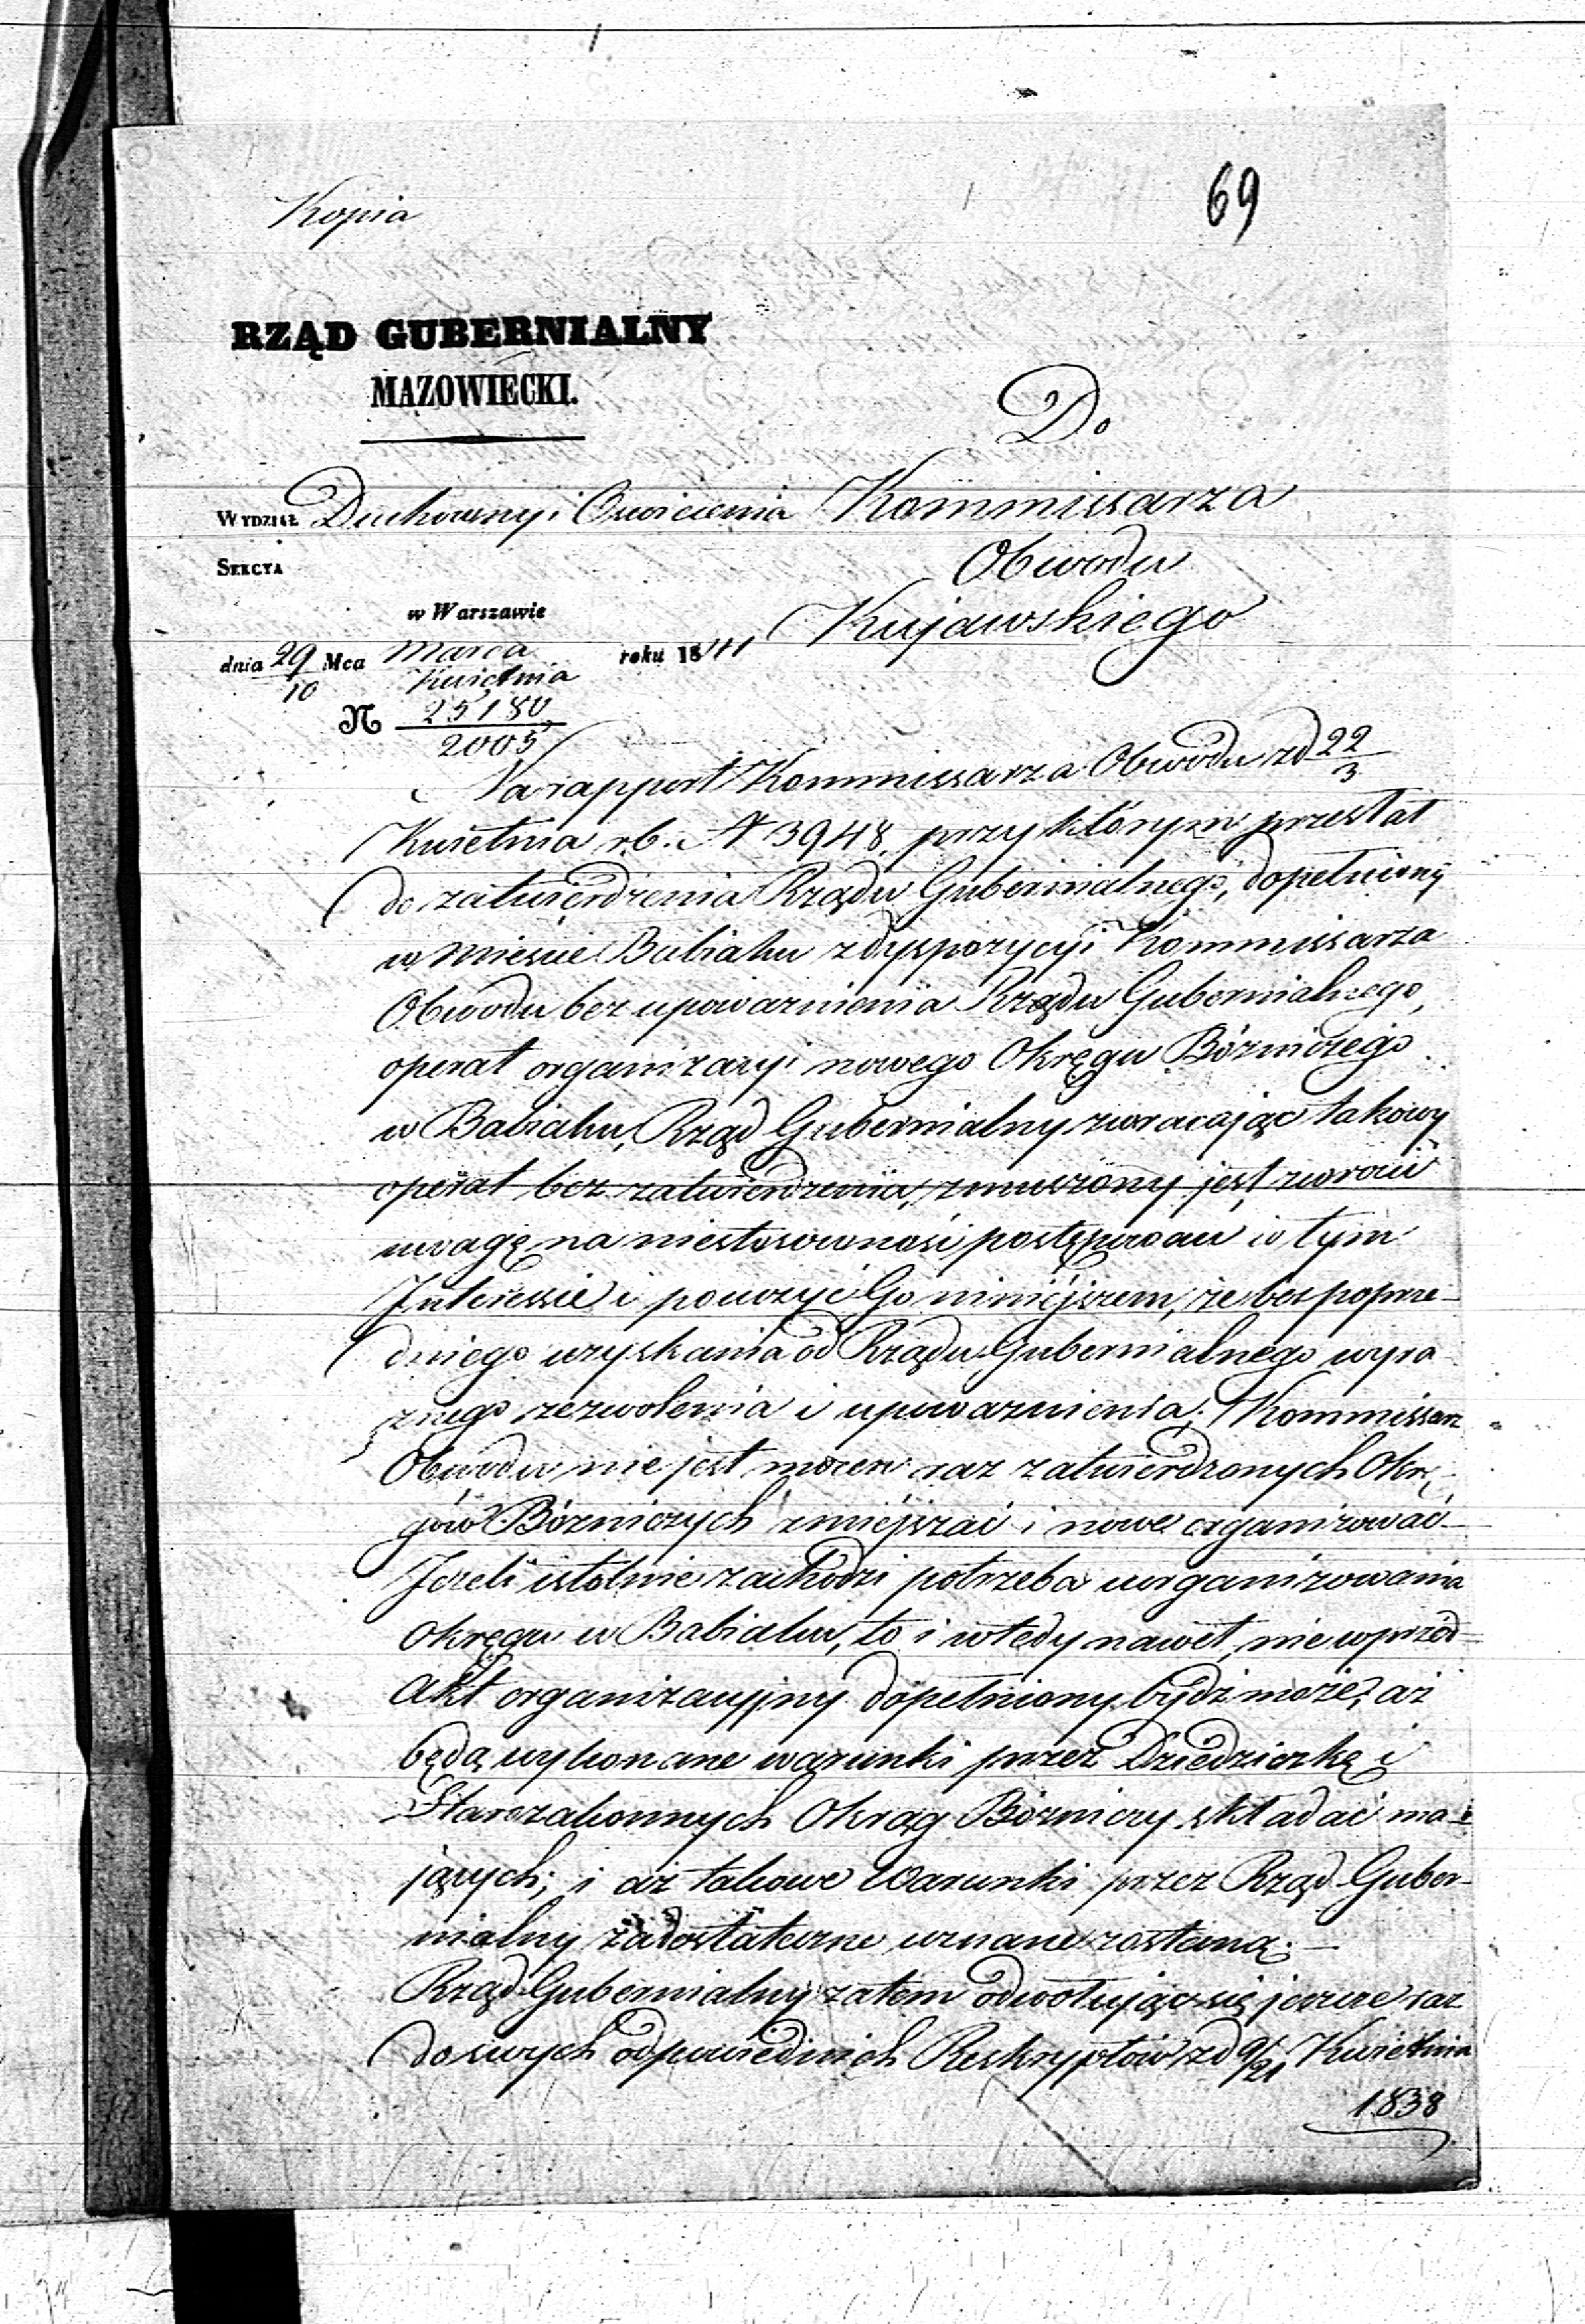 Kopia
69
RZĄD GUBERNIALNY
MAZOWIECKI.
Do
WYDZIAŁ Duchowny i Oswiecenia Kommissarza
SEKCYA
Obwodu
w Warszawie
Kujawskiego
dnia 29/10 Mca Marca/Kwietnia roku 1841
N 25180/2005
Na rapport Kommissarza Obwodu zd 22/3
Kwietnia r.b. N 3948. przy którym przesłał
do zatwierdzenia Rządu Gubernialnego, dopełniony
w mieście Babiaku z dyspozycyi Kommissarza
Obwodu bez upoważnienia Rządu Gubernialnego,
operat organizacyi nowego Okręgu Bózniczego
w Babiaku, Rząd Gubernialny zwracając takowy
operat bez zatwierdzenia, zmuszony jest zwrócić
uwagę na niestosowność postępowau w tym
Interessie i pouczyć Go niniéjszem, że bez poprze-
dniego uzyskania od Rządu Gubernialnego wyra-
znego zezwolenia i upoważnienia, Kommissarz
Obwodu nie jest mocen raz zatwierdzonych Okrę-
gów Bózniczych zmiéjszać i nowe organizować –
Jeżeli istotnie zachodzi potrzeba uorganizowania
Okręgu w Babiaku, to i wtedy nawet, nie wprzód
Akt organizacyjny dopełniony bydź może, aż
będą wykonane warunki przez Dziedziczkę i
Starozakonnych Okrąg Bózniczy składać ma-
jących; i aż takowe Warunki przez Rząd Guber-
nialny zadostateczne uznane zostaną. –
Rząd Gubernialny zatem odwołując się jeszcze raz
do swych odpowiednich Reskryptów zd 9/21 Kwietnia
1838